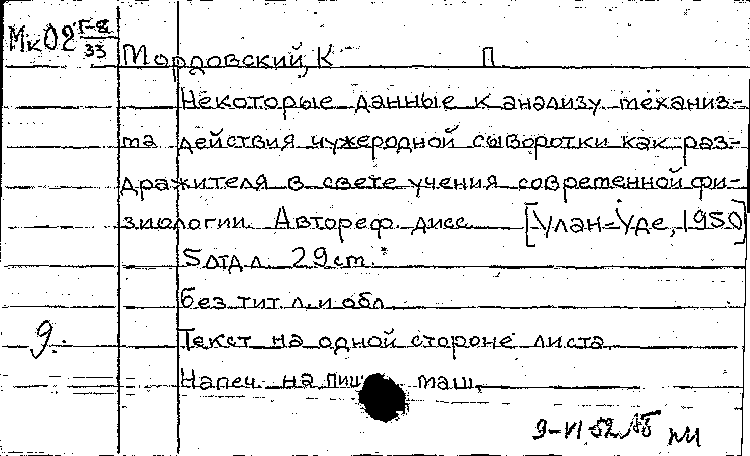 Мк02 Г-8/33
Мордовский, К П
Некоторые данные к анализу механиз-
ма действия чужеродной сыворотки как раз-
дражителя в свете учения современной фи-
зиологии. Автореф. дисс. [Улан-Уде, 1950]
5 отд. л. 29 cm.
без тит. л. и обл.
9. Текст на одной стороне листа
Напеч. на пиш. маш.
9-VI-52